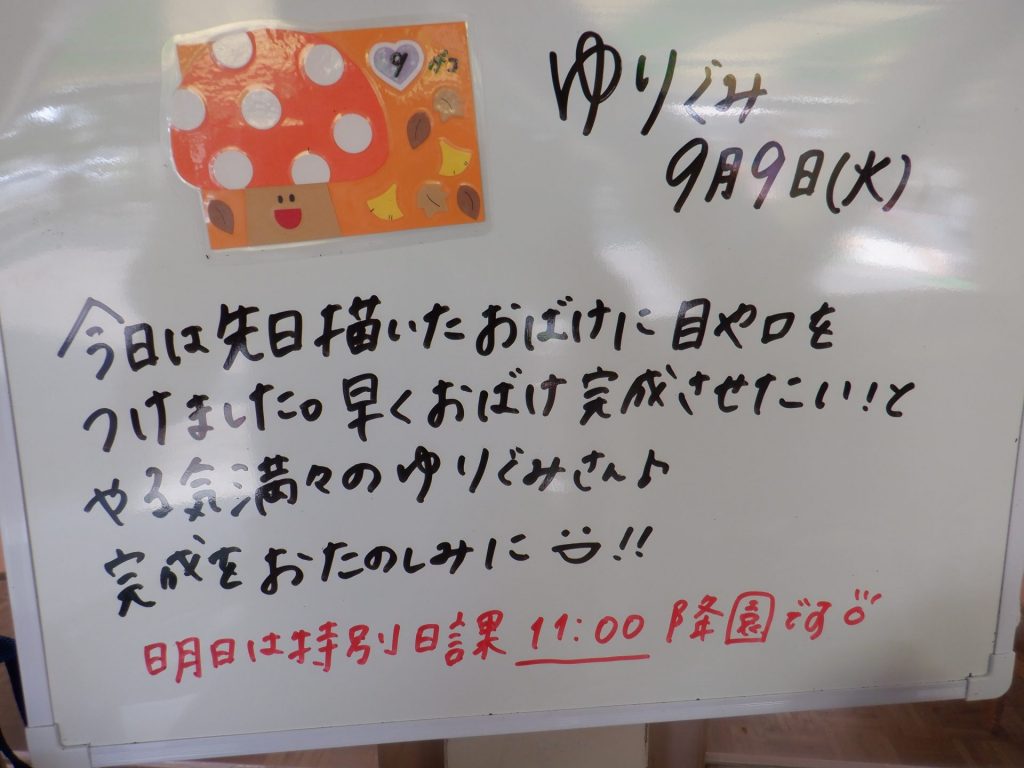 9
がつ
ゆりぐみ
9月9日(火)
今日は先日描いたおばけに目や口を
つけました。早くおばけ完成させたい!と
やる気満々のゆりぐみさん♪
完成をおたのしみに!!
明日は特別日課 11:00 降園です